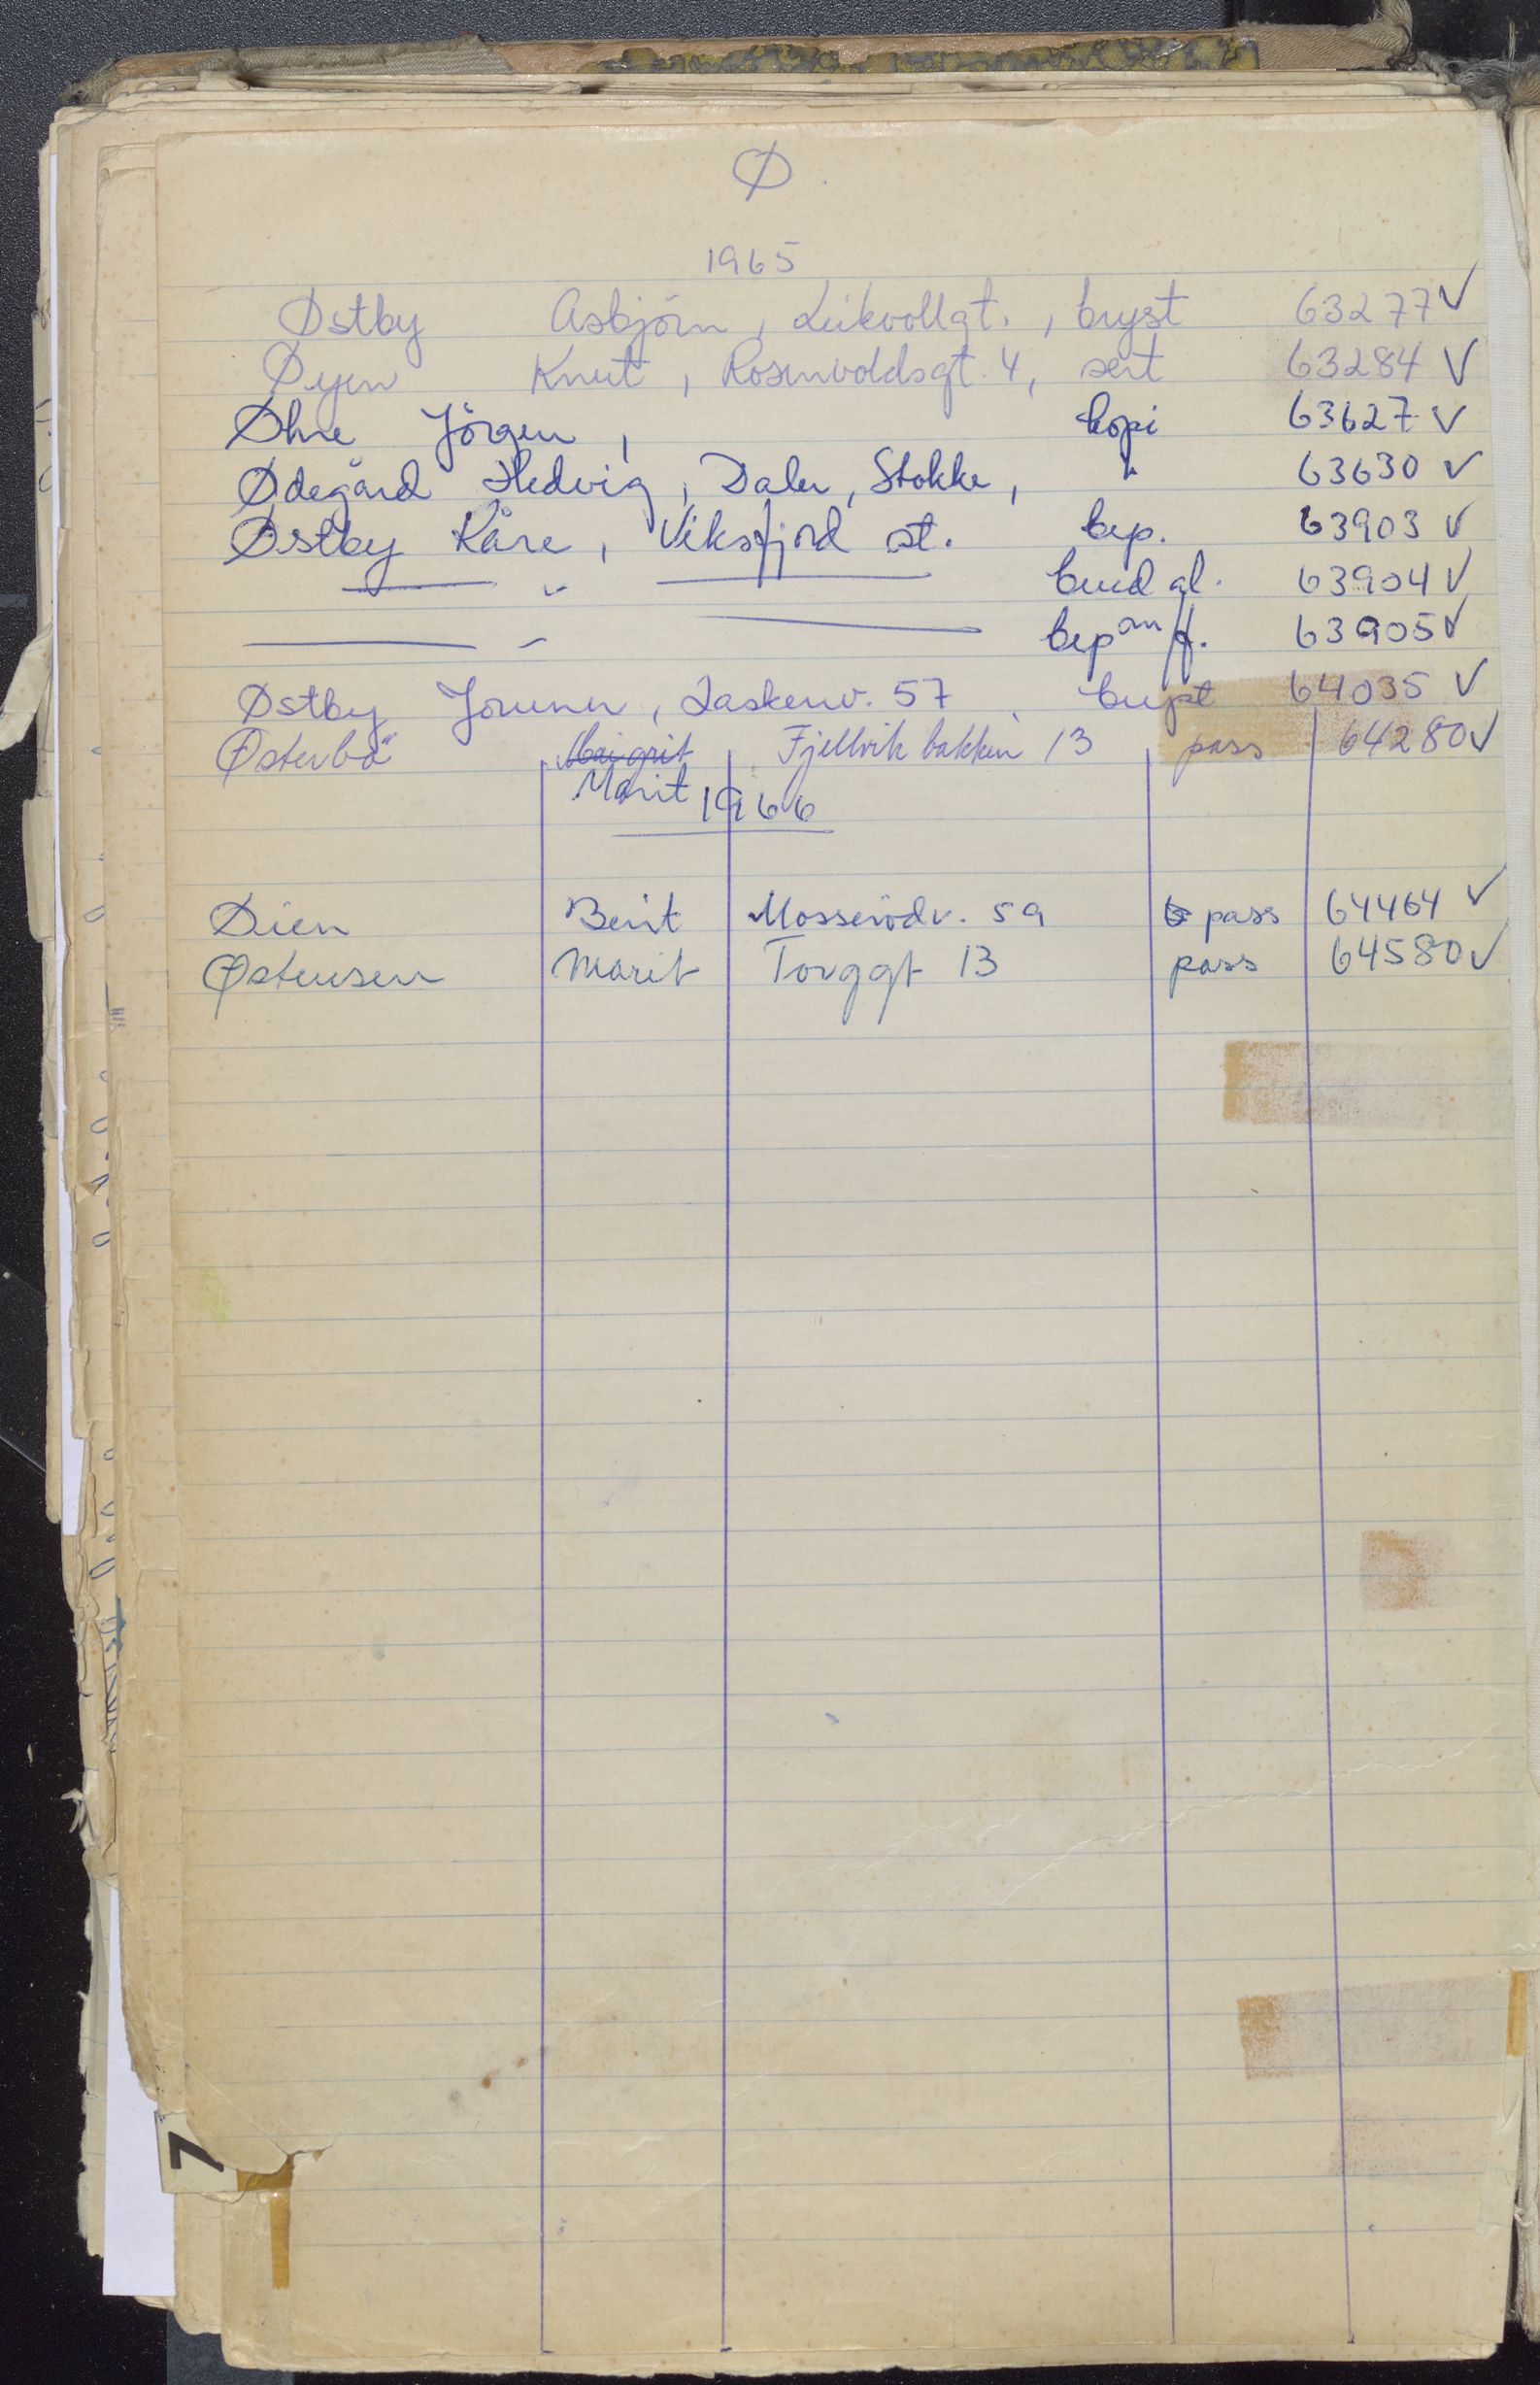 Ø
1965
Østby Asbjörn, Leikvollgt., bryst 63277 ✓
Øyen Knut, Rosenvoldsgt. 4, sert 63284 ✓
Øhre Jörgen, kopi 63627 ✓
Ødegård Hedvig, Dalen, Stokke, " 63630 ✓
Østby Kåre, Viksfjord st. bep. 63903 ✓
— " — brud gl. 63904 ✓
— " — bep 63905 ✓
Østby Jorunn, Laskenv. 57, bryst 64035 ✓
Østerbö Maigrit Fjellvikbakken 13 pass 64280 ✓
Marit
1966
Øien Berit Mosserödv. 59 pass 64464 ✓
Østensen Marit Torggt 13 pass 64580 ✓
7